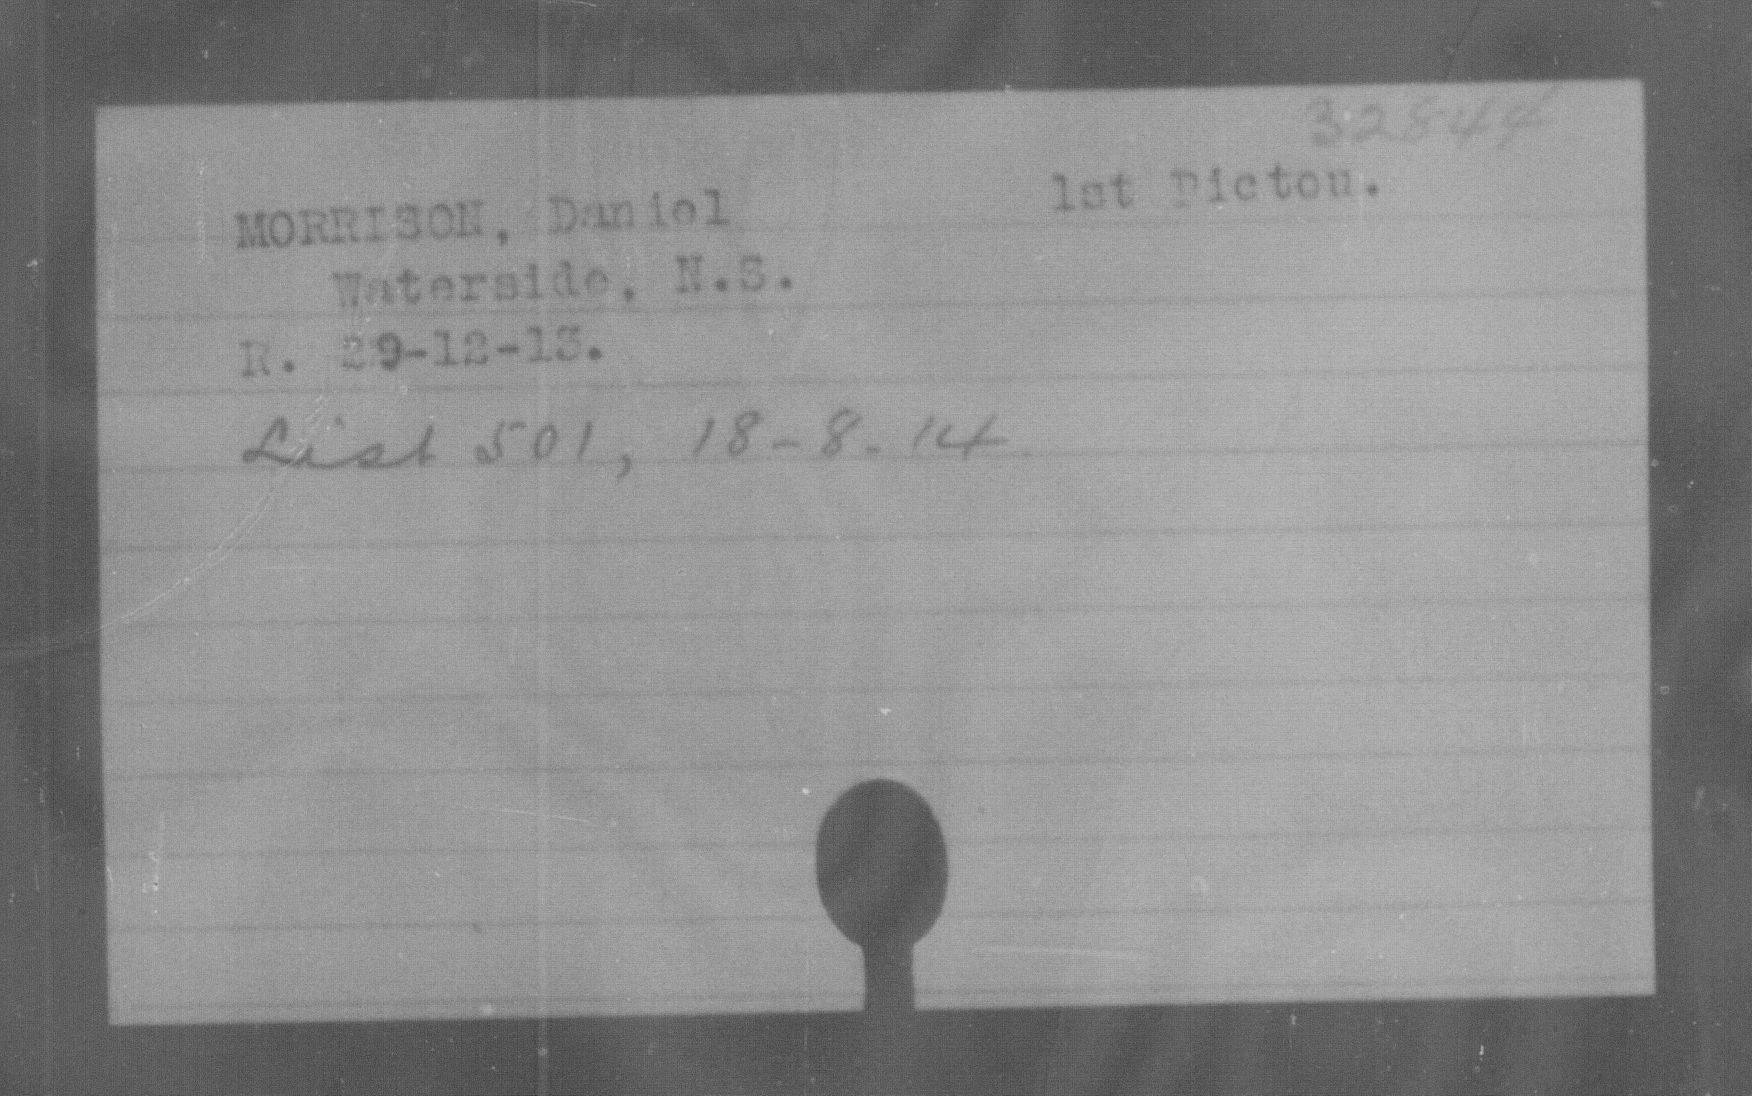 32844
MORRISON, Daniel 1st Pictou.
Waterside, N.S.
R. 29-12-13.
List 501, 18-8-14